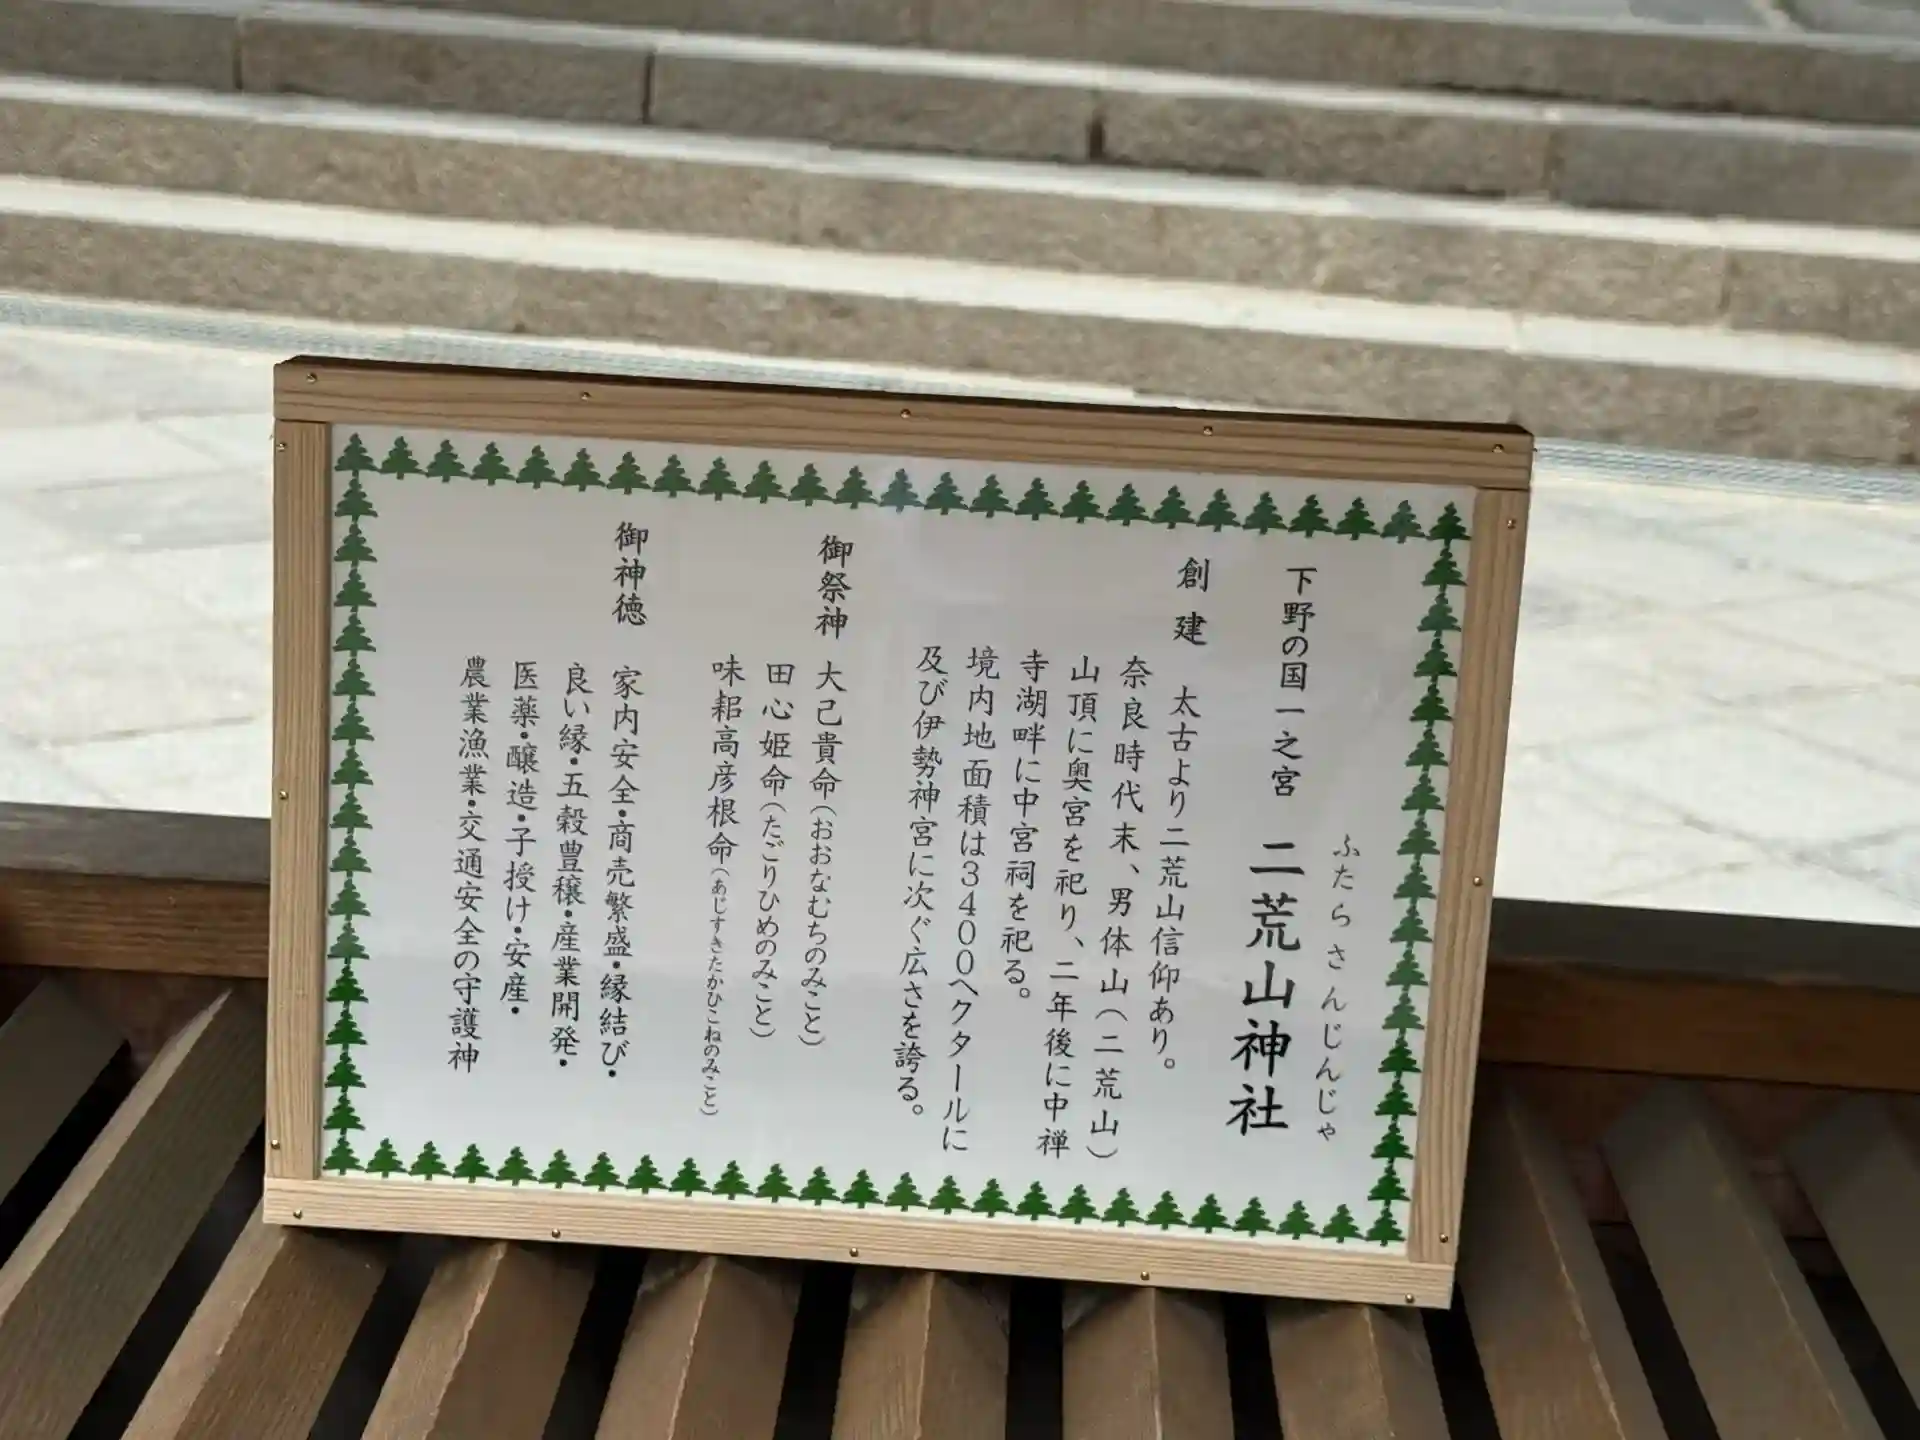 ふたらさんじんじゃ
下野の国一之宮 二荒山神社
創建 太古より二荒山信仰あり。
奈良時代末、男体山(二荒山)
山頂に奥宮を祀り、二年後に中禅
寺湖畔に中宮祠を祀る。
境内地面積は3400ヘクタールに
及び伊勢神宮に次ぐ広さを誇る。
御祭神 大己貴命(おおなむちのみこと)
田心姫命(たごりひめのみこと)
味耜高彦根命(あじすきたかひこねのみこと)
御神徳 家内安全・商売繁盛・縁結び・
良い縁・五穀豊穣・産業開発・
医薬・醸造・子授け・安産・
農業漁業・交通安全の守護神